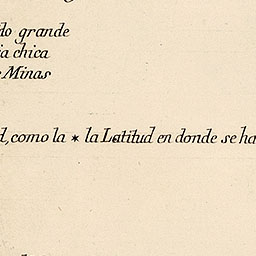 do grande
ia chica
Minas
d, como la * la Latitud en donde se ha